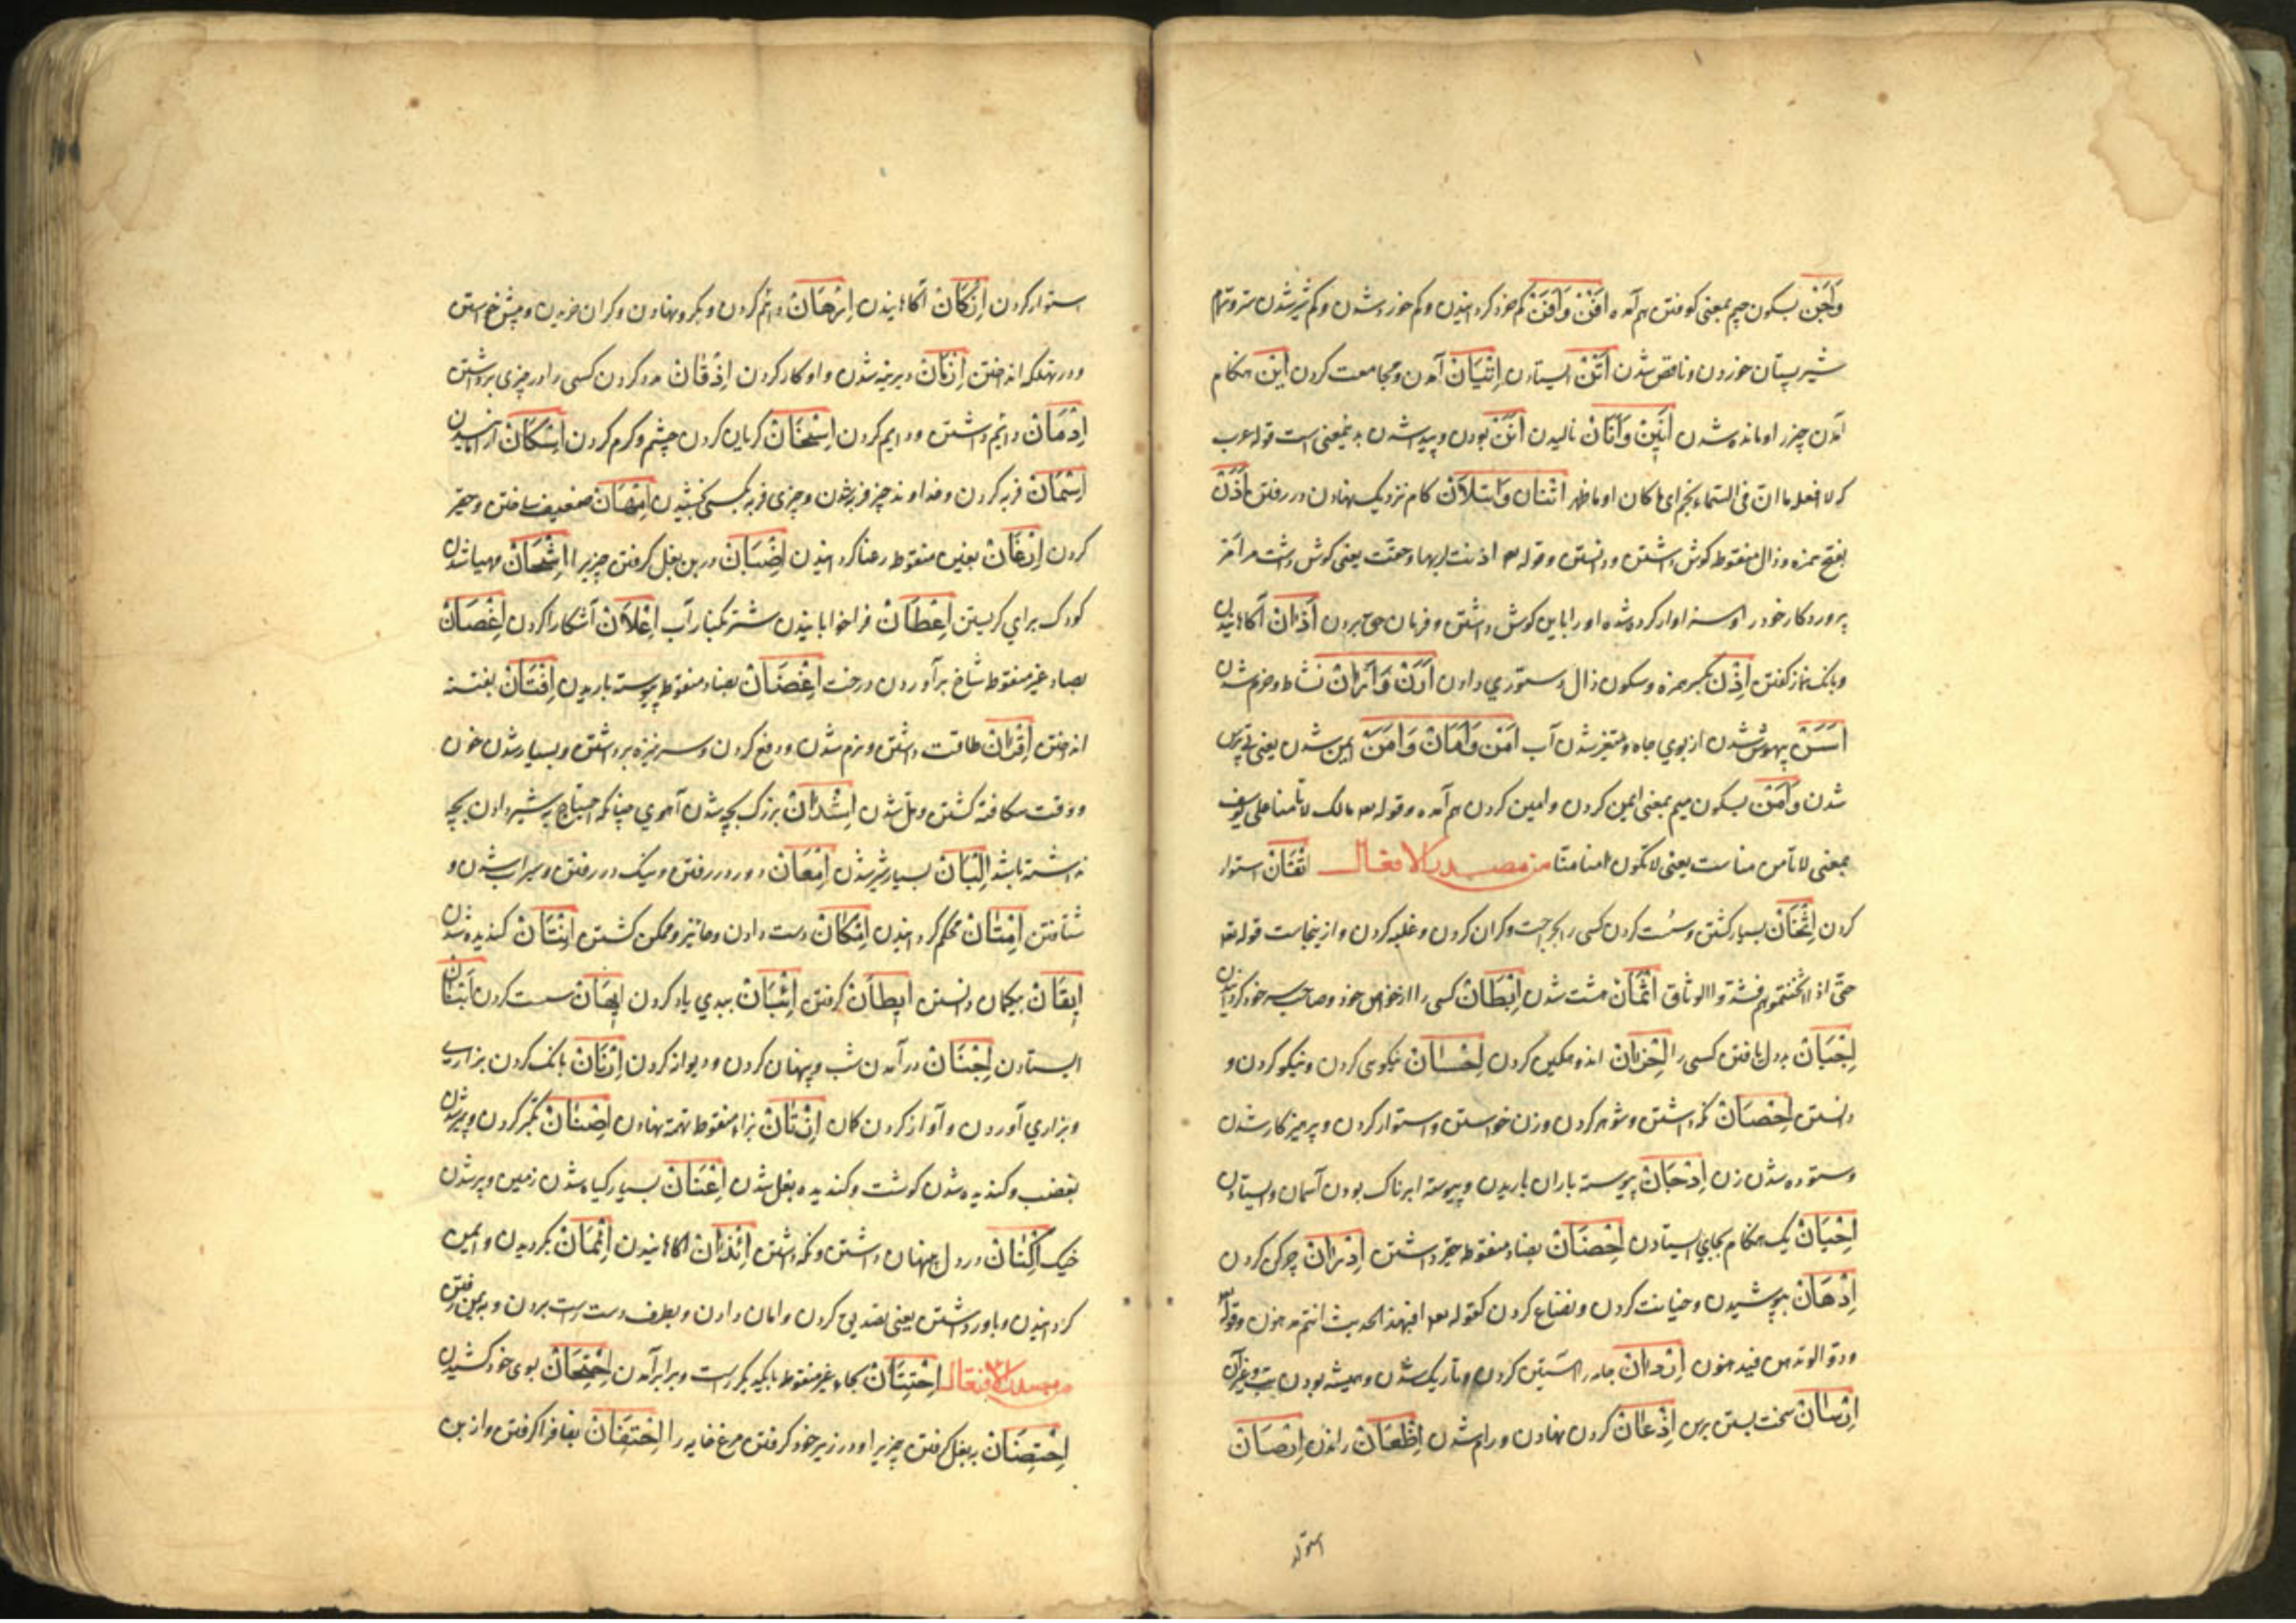 وَاَجْن بسکون جیم بمعنی کوفتن هم آمده اَفْن وَاَفَن کم خرد کردانیدن و کم خرد شدن و کم شیر شدن ستور و تمام
شیر پستان خوردن و ناقص شدن اَتْن ایستادن اِتْیَان آمدن و مجامعت کردن اَیْن هنکام
آمدن چیز و مانده شدن اَنِیْن وَاُنَان نالیدن بودن و پیدا شدن بدین معنی است قول عرب
که لا افعله ما ان فی السماء نجم ای ما کان او ما ظهر کام نزدیک نهادن در رفتن اَذَن
بفتح همزه و ذال منقوط کوش داشتن و دانستن و قوله تعه اذنت لربها و حقت یعنی کوش داشت مر امر
پروردکار خود را و سزاوار کرده شده او را باین کوش داشتن و فرمان حق بردن اَذَان آکاهانیدن
و بانک نماز کفتن اِذْن بکسر همزه و سکون ذال دستوری دادن اَرَن وَاَرَان نشاط و خرم شدن
اَسَن بیهوش شدن از بوی چاه و متغیر شدن آب اَمْن وَاَمَان وَاَمَن ایمن شدن یعنی بی ترس
شدن وَاَمْن بسکون میم بمعنی ایمن کردن و امین کردن هم آمده و قوله تعه مالک لا تأمنا علی یوسف
بمعنی لا تأمن مناست یعنی لا تکون امنا منا من مصدر الافعال اِتْقَان استوار
کردن اِثْخَان بسیار کشتن و سست کردن کسی را بجراحت و کران کردن و غلبه کردن و ازینجاست قوله تعه
حتی اذا اثخنتموهم فشدوا الوثاق اِثْمَان شدن اِبْطَان کسی را از خواص خود و صاحب سر خود کردانیدن
اِجْبَان بددل یافتن کسی را اِحْزَان اندوهکین کردن اِحْسَان نیکوئی کردن و نیکو کردن و
دانستن اِحْصَان نکه داشتن و شوهر کردن و زن خواستن و استوار کردن و پرهیزکار شدن
و ستوده شدن زن اِدْجَان پیوسته باران باریدن و پیوسته ابرناک بودن آسمان و ایستادن
اِحْیَان یک هنکام بجای ایستادن اِحْضَان بضاد منقوطه حقیر داشتن اِدْرَان چرکن کردن
اِدْهَان پوشیدن و خیانت کردن و نصناع کردن کقوله تعه افبهذا الحدیث انتم مدهنون و قوله تعه
ودوا لو تدهن فیدهنون اِرْدَان جامه را آستین کردن و تاریک شدن و همیشه بودن تب و غیر آن
اِرْسَان سخت بستن برسن اِذْعَان کردن نهادن و رام شدن اِظْعَان راندن اِرْصَان
استوار کردن اِزْکَان آکاهانیدن اِرْهَان دایم کردن و بکرو نهادن و کران خریدن و پیش خواستن
و در تهلکه انداختن اِزْمَان دیرینه شدن و اوکار کردن اِذْقَان مدد کردن کسی را در چیزی برداشتن
اِدْمَان دایم داشتن و دایم کردن اِسْخَان کریان کردن چشم و کرم کردن اِسْکَان آرامانیدن
اِسْمَان فربه کردن و خداوند چیز فربه شدن و چیزی فربه بکسی بخشیدن اِمْهَان ضعیف ساختن و حقیر
کردن اِرْغَان بغین منقوط رعنا کردانیدن اِضْبَان در بن بغل کرفتن چیزیرا اِشْحَان مهیا شدن
کودک برای کریستن اِعْطَان فراخوابانیدن شتر بکنار آب اِعْلَان آشکارا کردن اِغْصَان
بصاد غیر منقوط شاخ برآوردن درخت اِغْضَان بضاد منقوط پیوسته باریدن اِفْتَان بفتنه
انداختن اِقْرَان طاقت داشتن و نرم شدن و دفع کردن و سر نیزه برداشتن و بسیار شدن خون
و وقت شکافته کشتن دمل شدن اِشْدَان بزرک بچه شدن آهوی چنانکه احتیاج به شیر دادن بچه
نداشته باشد اِلْبَان بسیار شیر شدن اِمْعَان دور در رفتن و نیک در رفتن و سیراب شدن و
شتافتن اِمْتَان محکم کردانیدن اِمْکَان دست دادن و جائز و ممکن کشتن اِنْتَان کندیده شدن
اِیْقَان بیکمان دانستن اِیْطَان کرفتن ببدی یاد کردن اِیْهَان سست کردن
ایستادن اِجْنَان درآمدن شب و پنهان کردن و دیوانه کردن اِرْنَان بانک کردن بزاری
و بزاری آوردن و آواز کردن کمان اِزْنَان بزاء منقوط تهمت نهادن تکبر کردن و پر شدن
بغضب و کندیده شدن کوشت و کندیده بغل شدن اِغْنَان بسیار کیاه شدن زمین و پر شدن
خیک اِکْنَان در دل پنهان داشتن و نکه داشتن اِیْذَان آکاهانیدن اِیْمَان بکرویدن و ایمن
کردانیدن و باور داشتن یعنی تصدیق کردن و امان دادن و بطرف دست راست بردن و به یمن رفتن
من مصدر الافتعال اِحْتِتَان بحاء غیر منقوط با یکدیکر راست و برابر آمدن اِحْتِجَان بسوی خود کشیدن
اِحْتِضَان به بغل کرفتن چیزیرا و در زیر خود کرفتن مرغ خایه را اِحْتِفَان بفا فرا کرفتن و از بن
استوار